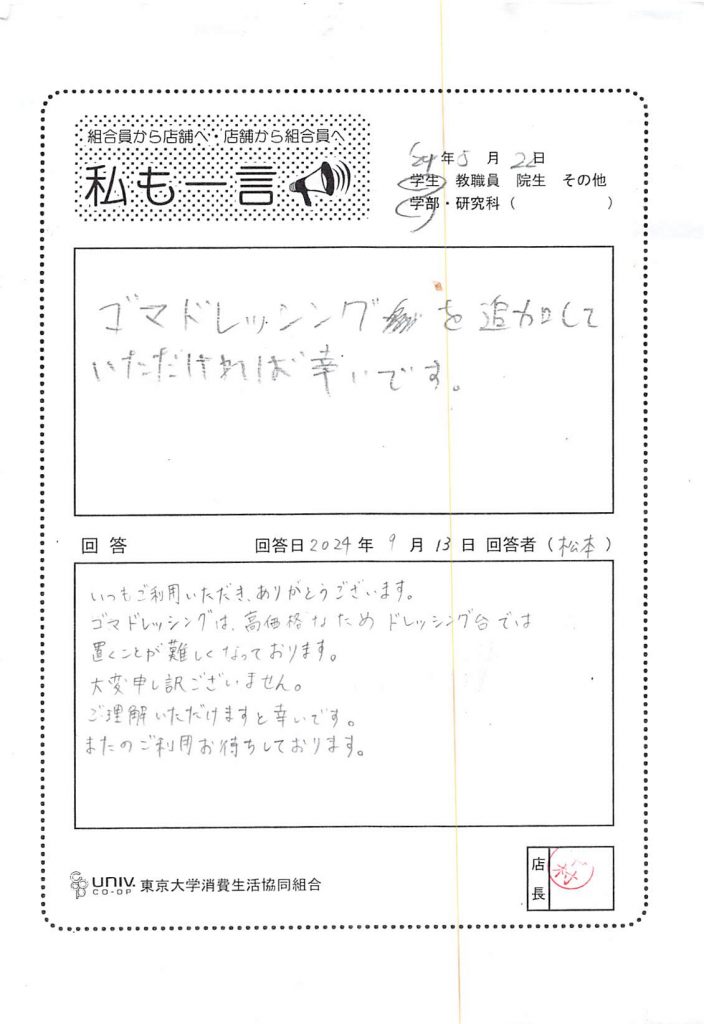 組合員から店舗へ・店舗から組合員へ
私も一言
'24年5月22日
学生 教職員 院生 その他
学部・研究科( )
ゴマドレッシングを追加して
いただければ幸いです。
回答 回答日2024年9月13日 回答者(松本)
いつもご利用いただき、ありがとうございます。
ゴマドレッシングは、高価格なためドレッシング台では
置くことが難しくなっております。
大変申し訳ございません。
ご理解いただけますと幸いです。
またのご利用お待ちしております。
UNIV. CO-OP 東京大学消費生活協同組合
店長